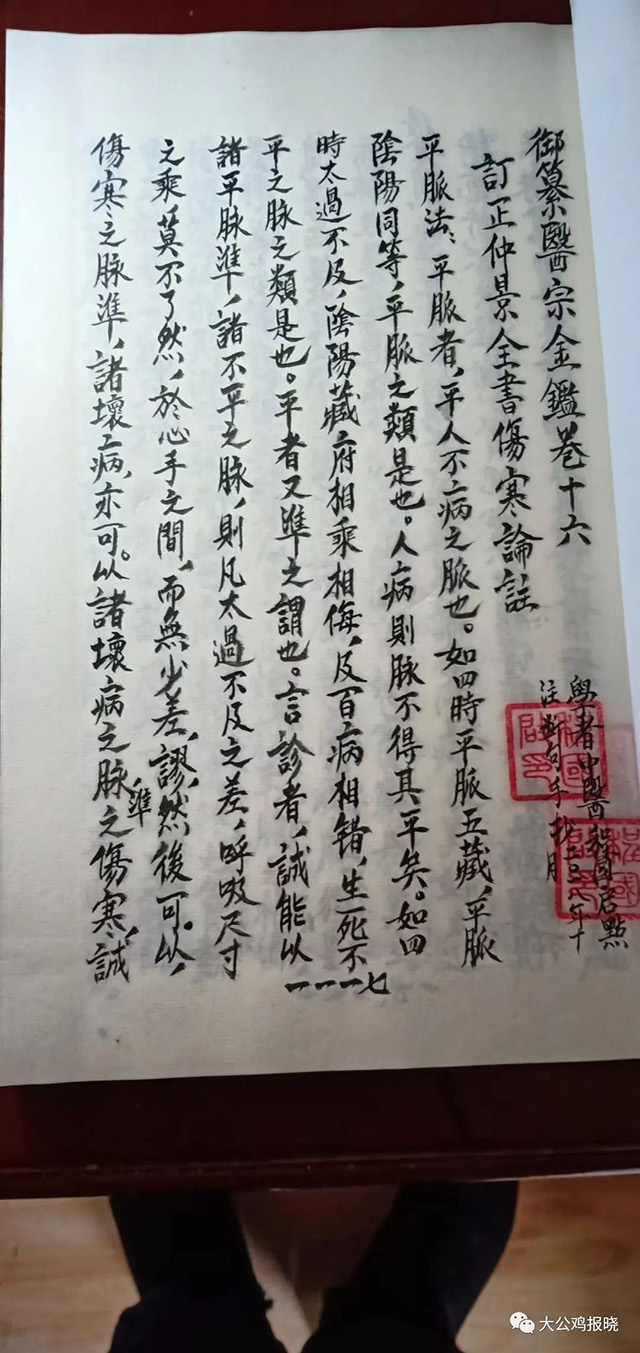 御纂醫宗金鑑卷十六
訂正仲景全書傷寒論註
學者中醫程國启點
注斷句手抄二〇一八年十月
平脈法：平脈者，平人不病之脈也。如四時平脈五藏，平脈
陰陽同等，平脈之類是也。人病則脈不得其平矣。如四
時太過不及，陰陽藏府相乘相侮，及百病相錯，生死不
平之脉之類是也。平者又準之謂也。言診者，誠能以
諸平脉準，諸不平之脉，則凡太過不及之差，呼吸尺寸
之乘，莫不了然，於心手之間，而無少差，謬，然後可。以，
傷寒之脉準，諸壞病，亦可。以諸壞病之脉，準之傷寒，誠
一一一七
大公鸡报晓